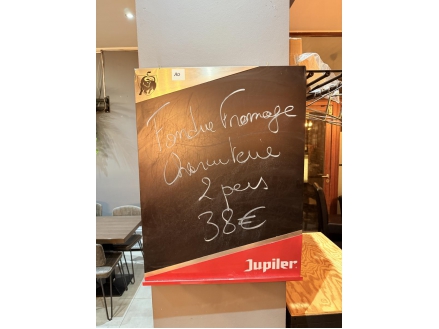 Fondue Fromage
Charcuterie
2 pers
38€
Jupiler